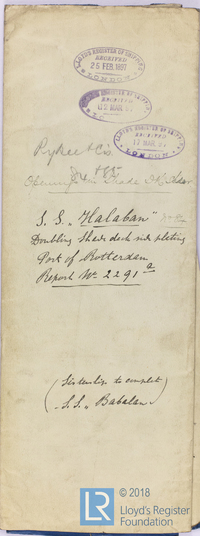 LLOYD'S REGISTER OF SHIPPING
RECEIVED
25 FEB. 1897
LONDON
LLOYD'S REGISTER OF SHIPPING
RECEIVED
MAR. 9
LONDON
LLOYD'S REGISTER OF SHIPPING
RECEIVED
MAR. 9
LONDON
Rykee & Co.
Openings in Shade Deck
S. S. "Halaban"
Doubling Shade deck side plating
Port of Rotterdam
Report No 2291 a
(Sistership to complet
S.S. "Babalan")
LR
© 2018
Lloyd's Register
Foundation